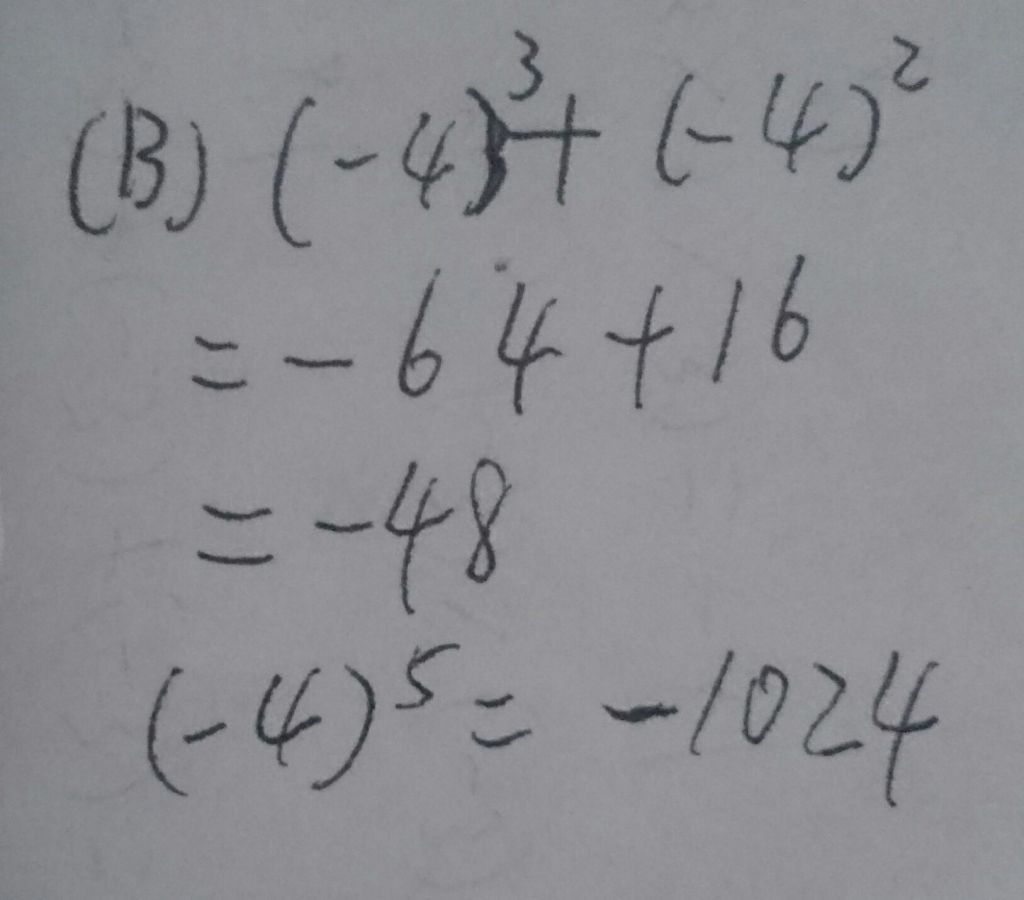 (B) (-4)³+ (-4)²
= -64+16
= -48
(-4)⁵ = -1024